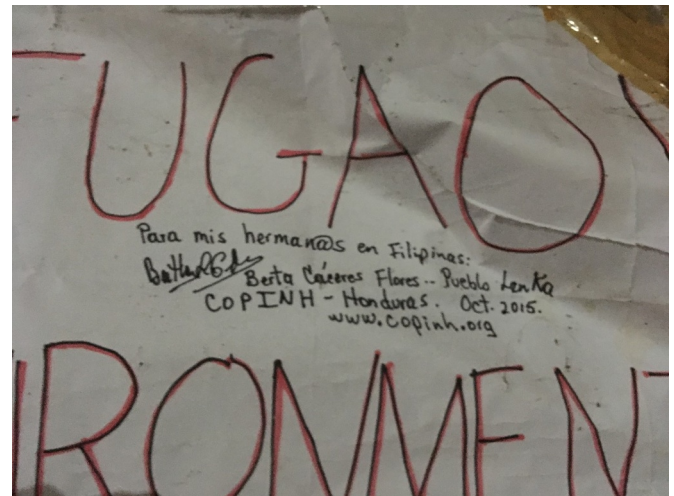 FUGAO
Para mis herman@s en Filipinas:
Berta Cáceres Flores.. Pueblo Lenka
COPINH - Honduras. Oct. 2015.
www.copinh.org
IRONMENT